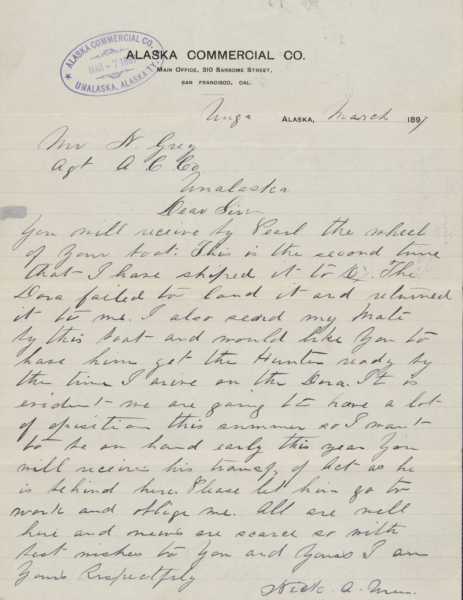 ALASKA COMMERCIAL CO.
MAR - 7 189
UNALASKA, ALASKA TY.
ALASKA COMMERCIAL CO.
MAIN OFFICE, 310 SANSOME STREET,
SAN FRANCISCO, CAL.
Unga ALASKA, March 1897
Mr N. Grey
Agt A C Co
Unalaska
Dear Sir
You will receive by Pearl the wheel
of Your boat. This is the second time
that I have shiped it to The
Dora failed to land it and returned
it to me. I also send my Mate
by this boat and would like You to
have him get the Hunter ready by
the time I arive on the Dora. It is
evident we are going to have a lot
of oposition this summer so I want
to be on hand early this year You
will receive his transfer of Act as he
is behind here. Please let him go to
work and oblige me. All are well
here and news are scarce so with
best wishes to You and Yours I am
Yours Respectfuly
Nick. A.